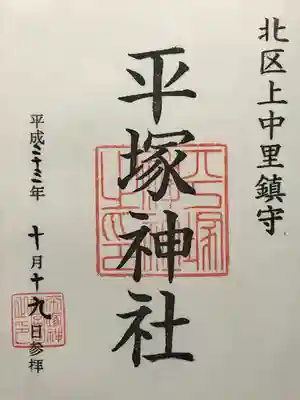 北区上中里鎮守
平塚神社
平成二十三年 十月十九日参拝